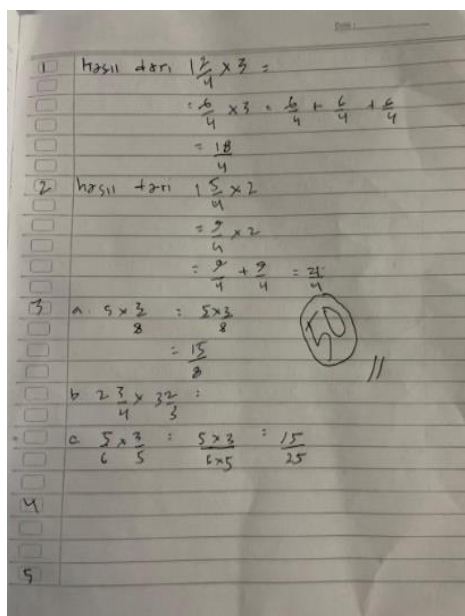 1 hasil dari 1 2/4 x 3 =
= 6/4 x 3 = 6/4 + 6/4 + 6/4
= 18/4
2 hasil dari 1 5/4 x 2
= 9/4 x 2
= 9/4 + 9/4 = 21/4
3 a. 5 x 3/8 = 5x3/8
= 15/8
50
b 2 3/4 x 3 2/3 =
c 5/6 x 3/5 = 5x3/6x5 = 15/25
4
5